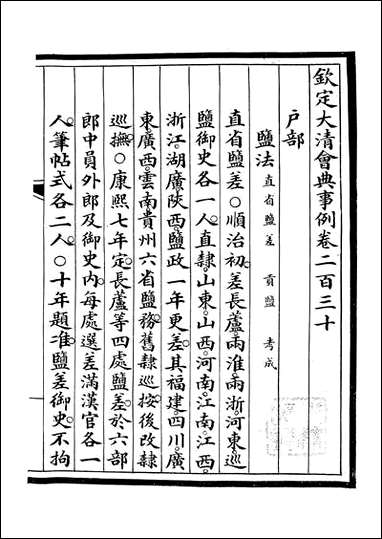 欽定大清會典事例卷二百三十
戶部
鹽法直省鹽差 貢鹽 考成
直省鹽差○順治初差長蘆兩淮兩浙河東巡
鹽御史各一人直隷山東山西河南江南江西
浙江湖廣陝西鹽政一年更差其福建四川廣
東廣西雲南貴州六省鹽務舊隷巡按後改隷
巡撫○康熙七年定長蘆等四處鹽差於六部
郎中員外郎及御史内每處選差滿漢官各一
人筆帖式各二人○十年題准鹽差御史不拘